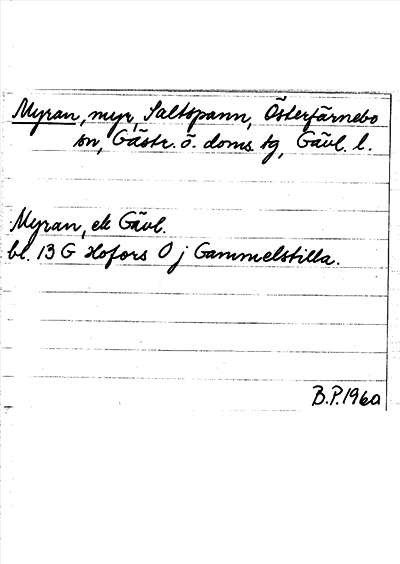 Myran, myr, Saltspann, Österfärnebo
sn, Gästr. ö. doms. tg, Gävl. l.
Myran, ek Gävl.
bl. 13 G Hofors O j Gammelstilla.
B.P. 1960